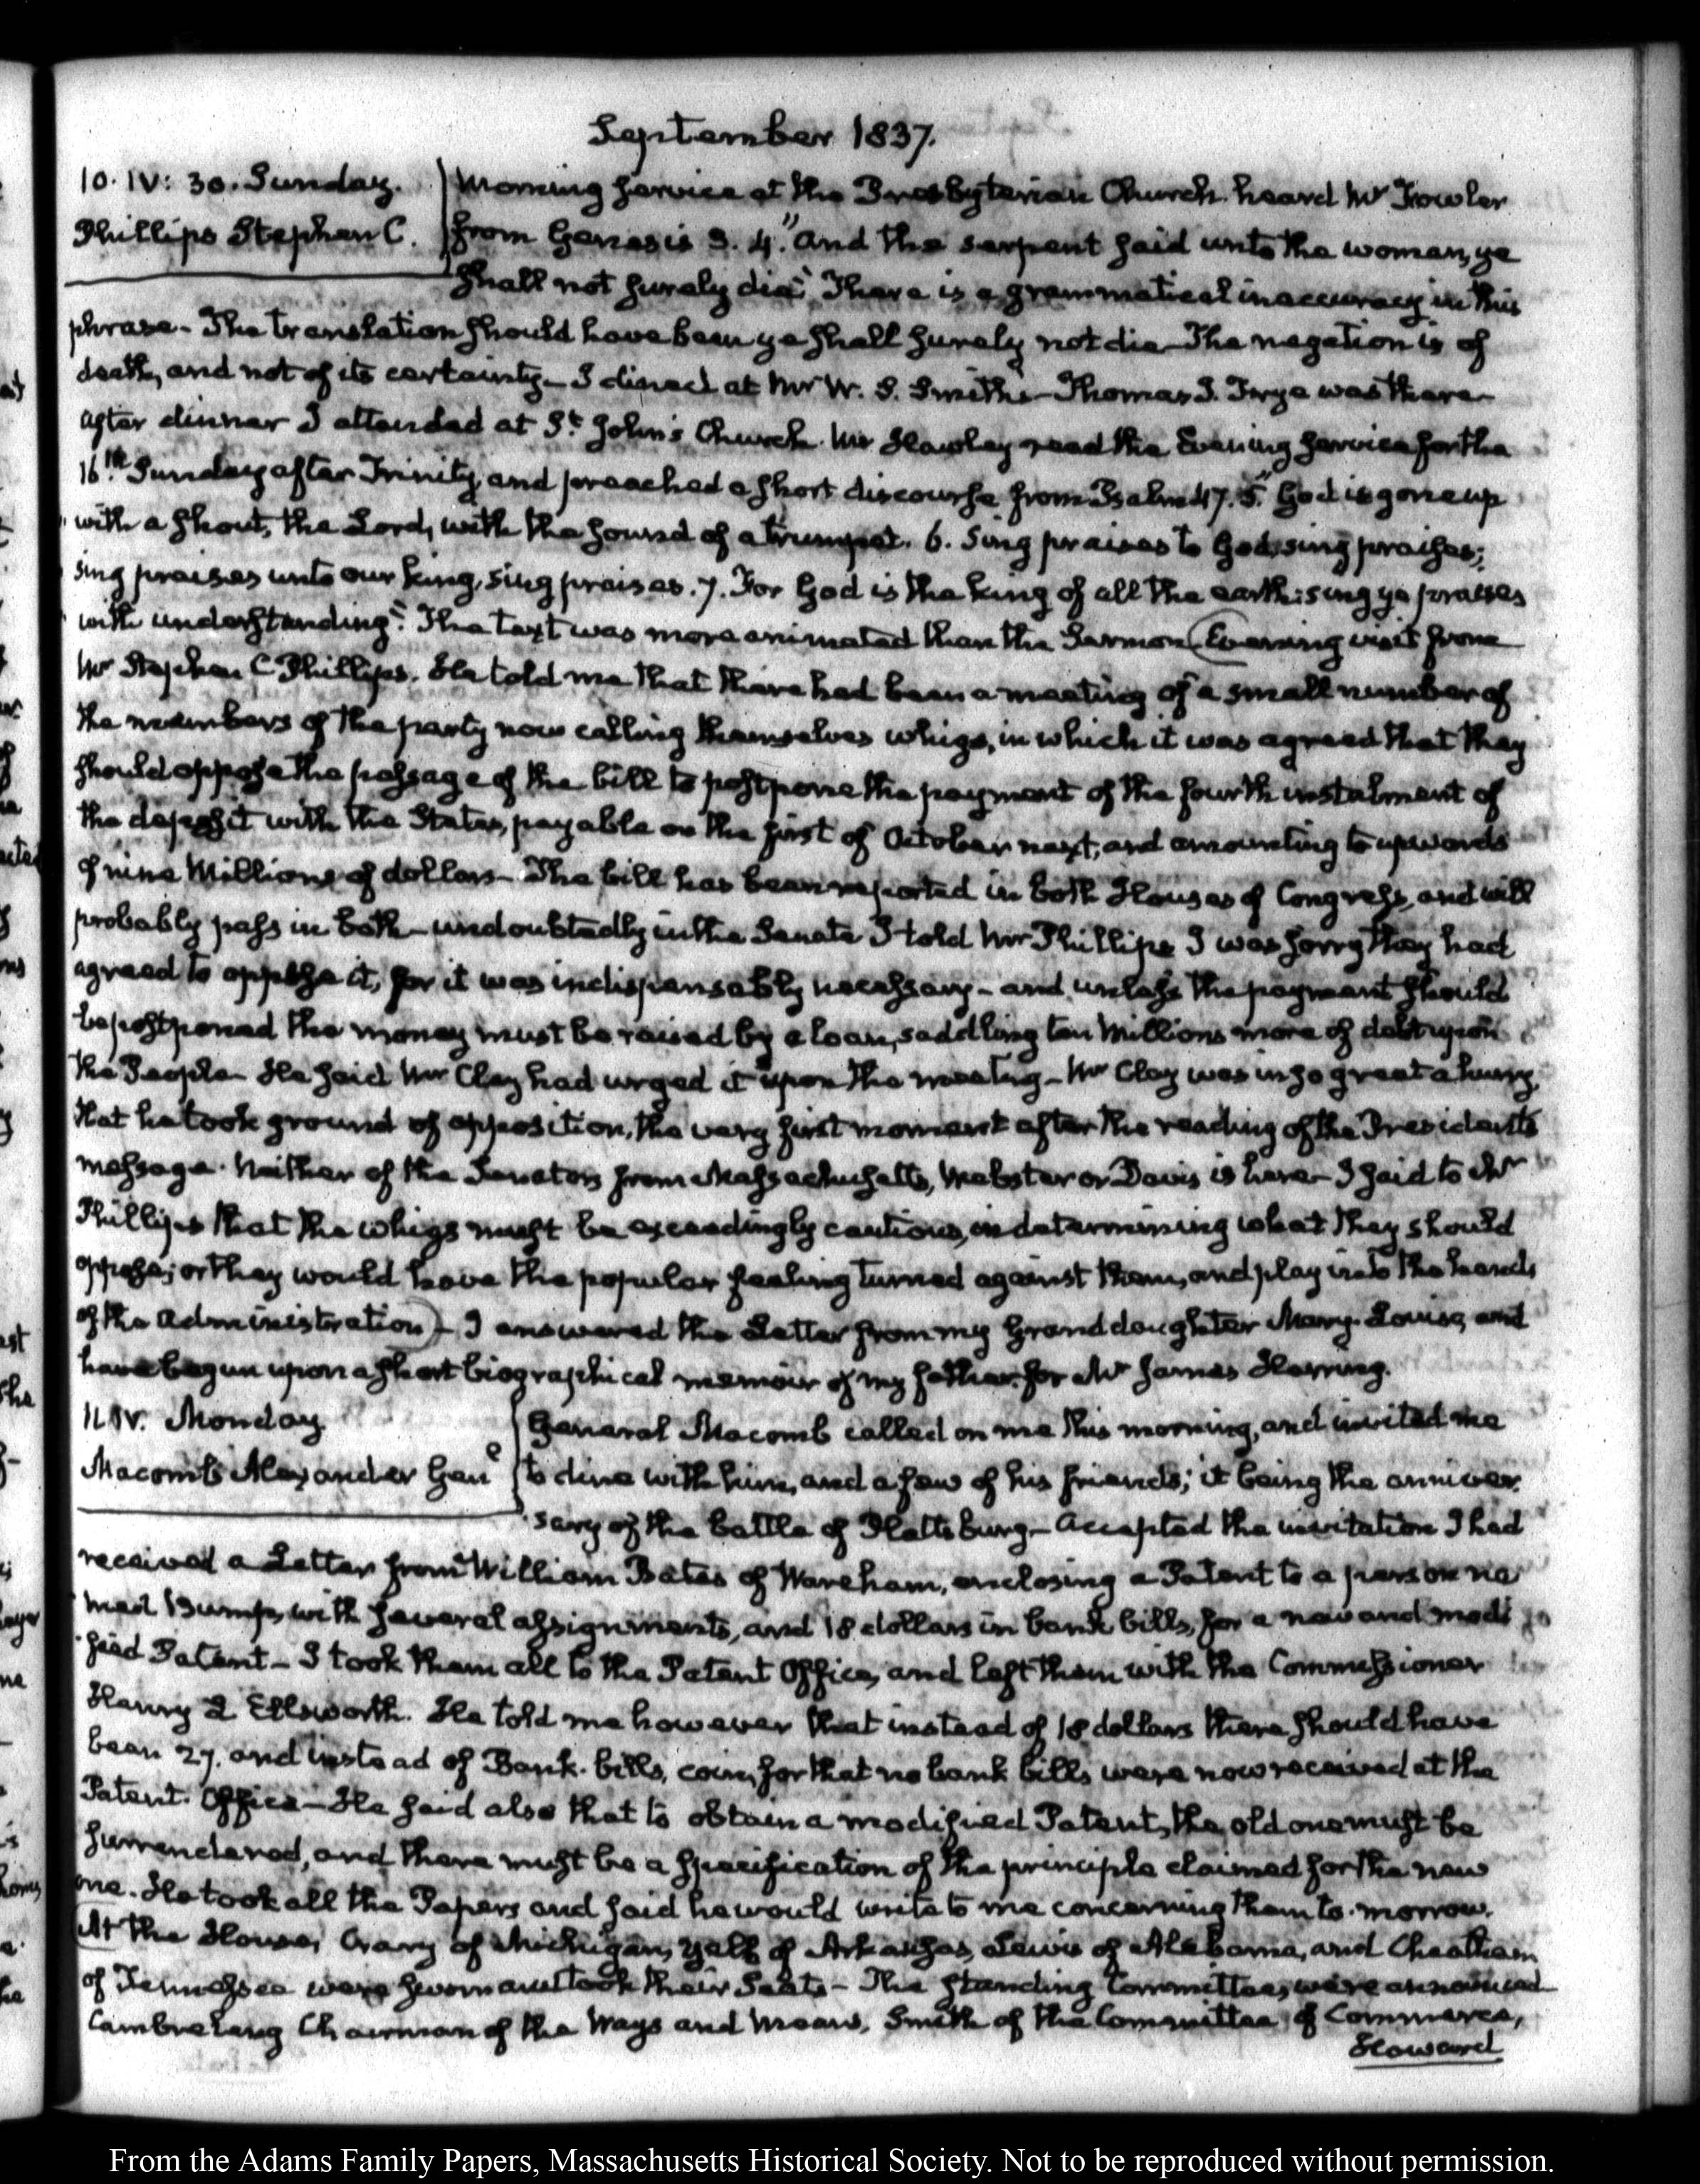 September 1837.
10. IV: 30. Sunday.
Phillips Stephen C.
Morning service at the Presbyterian Church. heard Mr Fowler
from Genesis 3. 4. "And the serpent said unto the woman, ye
shall not surely die." There is a grammatical inaccuracy in this
phrase— The translation should have been ye shall surely not die— The negation is of
death, and not of its certainty— I dined at Mr W. S. Smith's— Thomas J. Frye was there—
after dinner I attended at St. John's Church. Mr Hawley read the Evening service for the
16th. Sunday after Trinity, and preached a short discourse from Psalm 47. 5. "God is gone up
with a shout, the Lord, with the sound of a trumpet. 6. Sing praises to God, sing praises;
sing praises unto our king, sing praises. 7. For God is the king of all the earth: sing ye praises
with understanding." The text was more animated than the Sermon (Evening visit from
Mr Stephen C Phillips. He told me that there had been a meeting of a small number of
the members of the party now calling themselves whigs, in which it was agreed that they
should oppose the passage of the bill to postpone the payment of the fourth instalment of
the deposit with the States, payable on the first of October next, and amounting to upwards
of nine Millions of dollars— The bill has been reported in both Houses of Congress, and will
probably pass in both— undoubtedly in the Senate I told Mr Phillips I was sorry they had
agreed to oppose it, for it was indispensably necessary— and unless the payment should
be postponed the money must be raised by a loan, saddling ten Millions more of debt upon
the People— He said Mr Clay had urged it upon the meeting— Mr Clay was in so great a hurry,
that he took ground of opposition, the very first moment after the reading of the President's
message. Neither of the Senators from Massachusetts, Webster or Davis is here— I said to Mr
Phillips that the whigs must be exceedingly cautious, in determining what they should
oppose; or they would have the popular feeling turned against them, and play into the hands
of the Administration)— I answered the Letter from my Granddaughter Mary-Louisa, and
have begun upon a short biographical memoir of my father for Mr James Herring.
11. IV. Monday
Macomb Alexander Genl
General Macomb called on me this morning, and invited me
to dine with him, and a few of his friends; it being the anniver-
sary of the battle of Plattsburg— accepted the invitation I had
received a Letter from William Bates of Wareham, enclosing a Patent to a person na
med Bump, with several assignments, and 18 dollars in bank bills, for a new and modi
fied Patent— I took them all to the Patent Office, and left them with the Commissioner
Henry L Ellsworth. He told me however that instead of 18 dollars there should have
been 27. and instead of Bank-bills, coin, for that no bank bills were now received at the
Patent Office— He said also that to obtain a modified Patent, the old one must be
surrendered, and there must be a specification of the principle claimed for the new
one. He took all the Papers and said he would write to me concerning them to-morrow.
At the House, Crary of Michigan, Yell of Arkansas, Lewis of Alabama, and Cheatham
of Tennessee were sworn and took their Seats— The standing Committees were announced
Cambreleng Chairman of the Ways and Means, Smith of the Committee of Commerce,
Howard
From the Adams Family Papers, Massachusetts Historical Society. Not to be reproduced without permission.